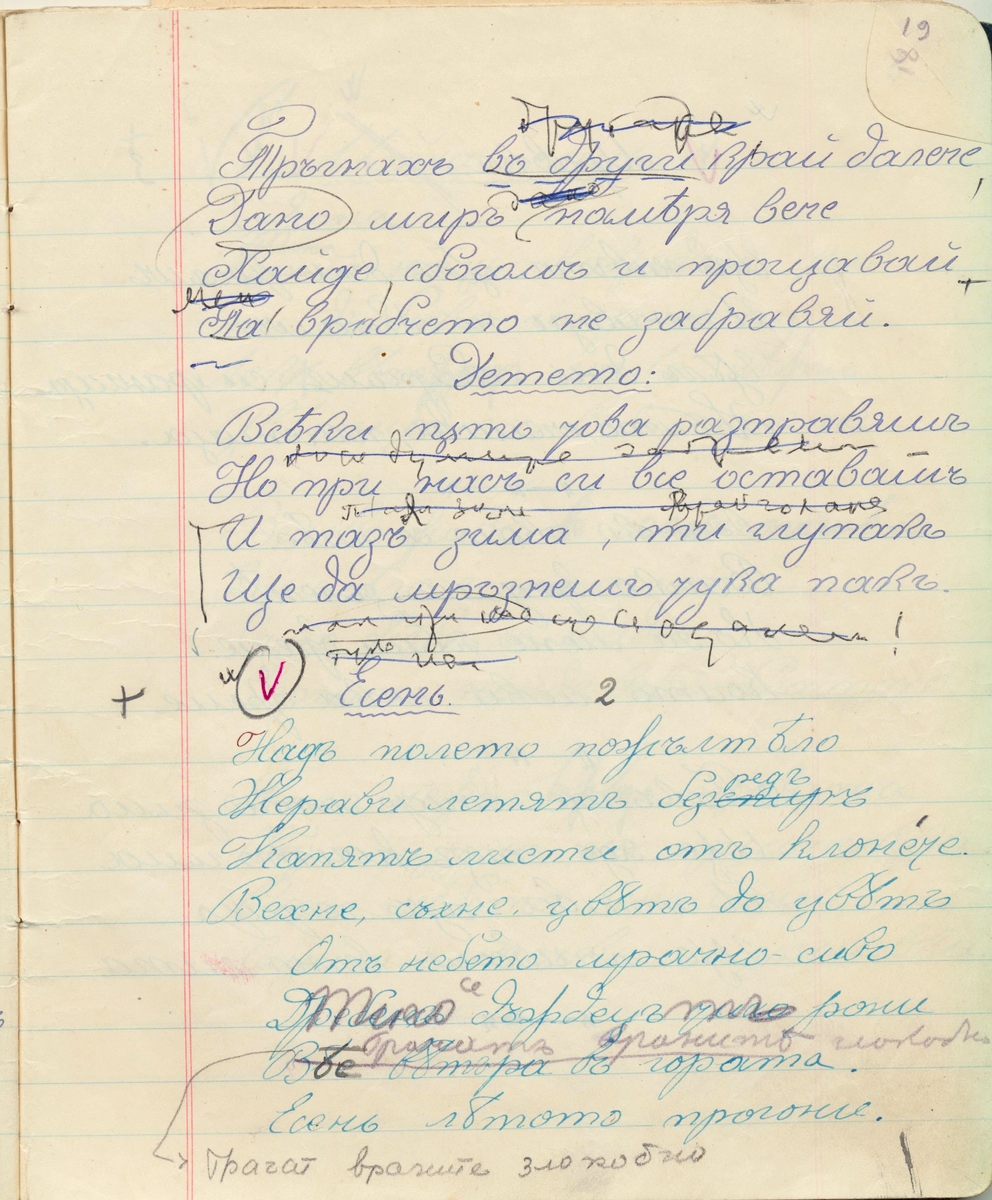 19
Тръгнахъ въ други край далече,
Дано миръ намѣря вече
Хайде, сбогомъ и прощавай
На врабчето не забравяй.
Детето:
Всѣки пѫть това разправяшъ
Но при насъ си все оставашъ
И тазъ зима, ти глупакъ
Ще да мръзнешъ тука пакъ.
Есень. 2
Надъ полето пожълтѣло
Жерави летятъ безредъ
Капятъ листи отъ клонéте.
Вехне, съхне цвѣтъ до цвѣтъ
Отъ небето мрачно-сиво
Тихо се дъждецъ рони
Вѣе вѣтъра въ гората.
Есень лѣтото прогони.
Грачат враните злокобно